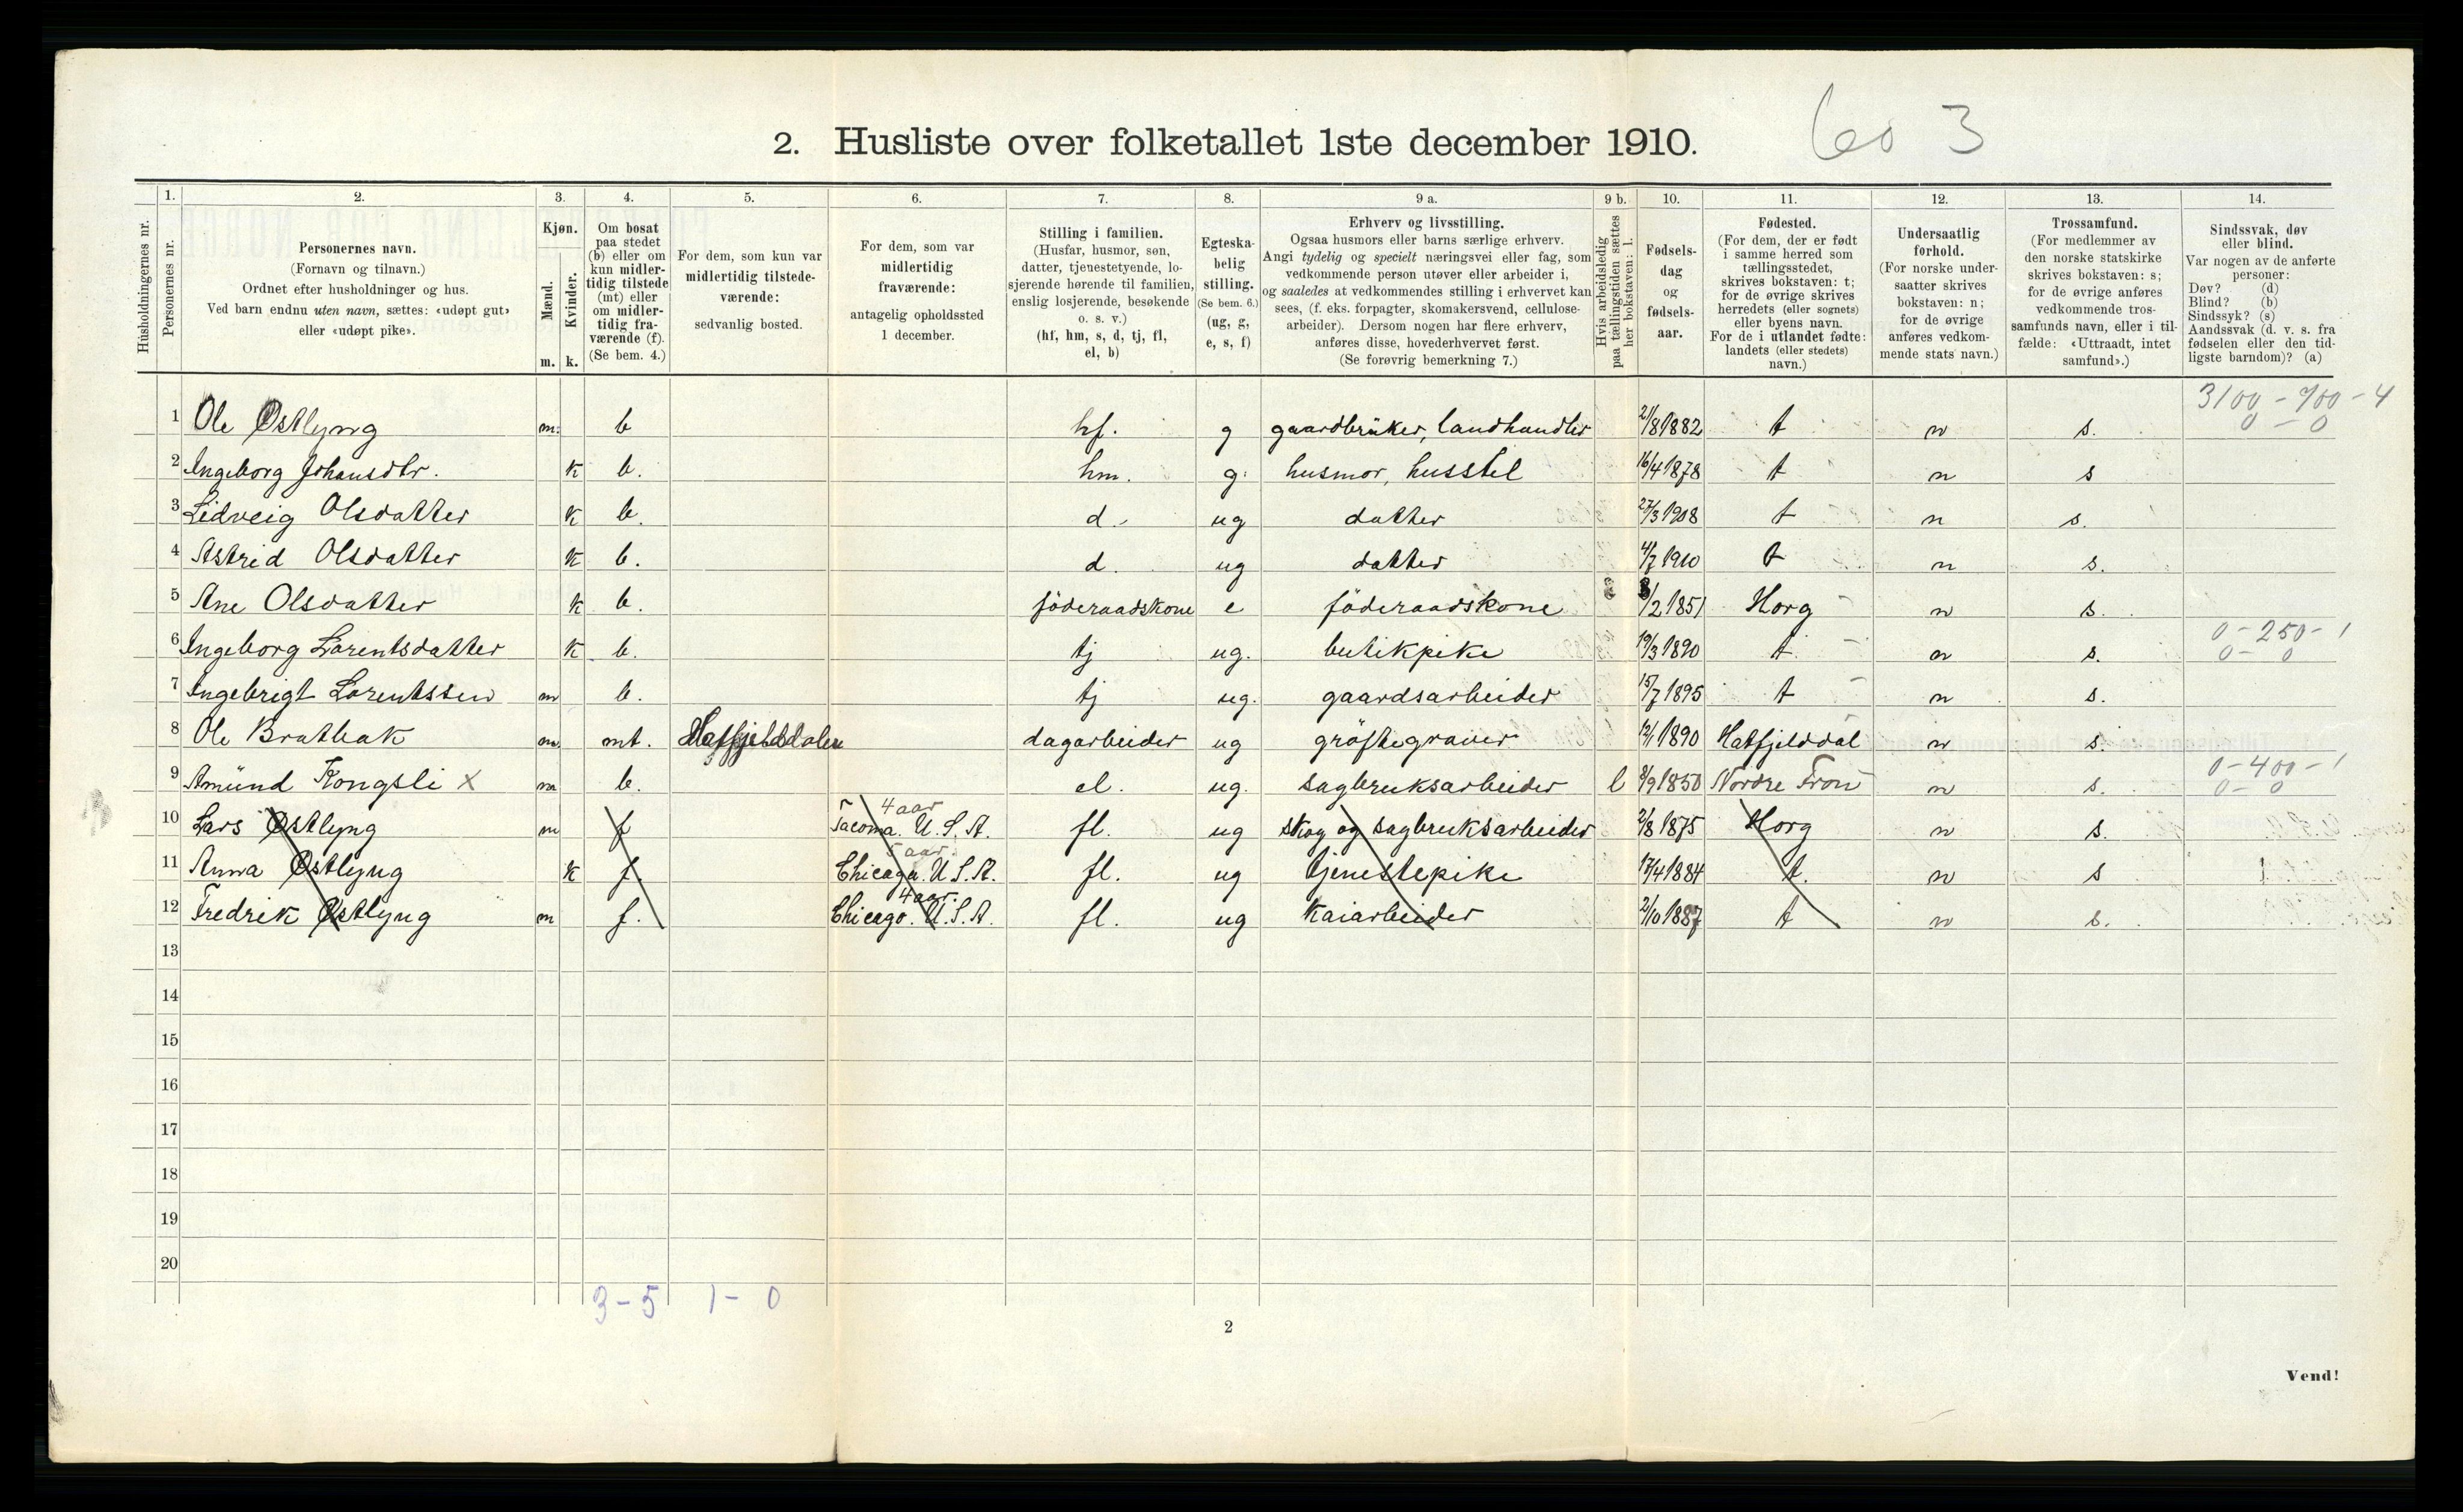 2. Husliste over folketallet 1ste december 1910.
60 3
1. 2. 3. 4. 5. 6. 7. 8. 9 a. 9 b. 10. 11. 12. 13. 14.
Husholdningernes nr.
Personernes nr.
Personernes navn.
(Fornavn og tilnavn.)
Ordnet efter husholdninger og hus.
Ved barn endnu uten navn, sættes: «udøpt gut»
eller «udøpt pike».
Kjøn.
Mænd.
Kvinder.
m. k.
Om bosat
paa stedet
(b) eller om
kun midler-
tidig tilstede
(mt) eller
om midler-
tidig fra-
værende (f).
(Se bem. 4.)
For dem, som kun var
midlertidig tilstede-
værende:
sedvanlig bosted.
For dem, som var
midlertidig
fraværende:
antagelig opholdssted
1 december.
Stilling i familien.
(Husfar, husmor, søn,
datter, tjenestetyende, lo-
sjerende hørende til familien,
enslig losjerende, besøkende
o. s. v.)
(hf, hm, s, d, tj, fl,
el, b)
Egteska-
belig
stilling.
(Se bem. 6.)
(ug, g,
e, s, f)
Erhverv og livsstilling.
Ogsaa husmors eller barns særlige erhverv.
Angi tydelig og specielt næringsvei eller fag, som
vedkommende person utøver eller arbeider i,
og saaledes at vedkommendes stilling i erhvervet kan
sees, (f. eks. forpagter, skomakersvend, cellulose-
arbeider). Dersom nogen har flere erhverv,
anføres disse, hovederhvervet først.
(Se forøvrig bemerkning 7.)
Hvis arbeidsledig
paa tællingstiden sættes
her bokstaven: l.
Fødsels-
dag
og
fødsels-
aar.
Fødested.
(For dem, der er født
i samme herred som
tællingsstedet,
skrives bokstaven: t;
for de øvrige skrives
herredets (eller sognets)
eller byens navn.
For de i utlandet fødte:
landets (eller stedets)
navn.)
Undersaatlig
forhold.
(For norske under-
saatter skrives
bokstaven: n;
for de øvrige
anføres vedkom-
mende stats navn.)
Trossamfund.
(For medlemmer av
den norske statskirke
skrives bokstaven: s;
for de øvrige anføres
vedkommende tros-
samfunds navn, eller i til-
fælde: «Uttraadt, intet
samfund».)
Sindssvak, døv
eller blind.
Var nogen av de anførte
personer:
Døv? (d)
Blind? (b)
Sindssyk? (s)
Aandssvak (d. v. s. fra
fødselen eller den tid-
ligste barndom)? (a)
3100 - 700 - 4
1 Ole Østlyng m. b hf. g gaardbrüker, landhandler 21/8 1882 t n s. 0 - 0
2 Ingeborg Johansdtr. k b. hm. g. husmor, husstel 16/4 1878 t n s
3 Lidveig Olsdatter k b. d. ug datter 27/3 1908 t n s.
4 Astrid Olsdatter k b. d. ug datter 4/7 1910 t n s.
5 Ane Olsdatter k b. föderaadskone e föderaadskone /2 1851 Horg n s.
0 - 250 - 1
6 Ingeborg Lorentsdatter k b. tj ug. butikpike 19/3 1890 t n s. 0 - 0
7 Ingebrigt Lorentssen m b. tj ug. gaardsarbeider 15/7 1895 t n s.
8 Ole Bratbak m mt. Hatfjelddalen dagarbeider ug grøftegraver 12/1 1890 Hatfjelddal n s.
0 - 400 - 1
9 Amünd Kongsli x m b. el. ug. sagbruksarbeider l 8/9 1850 Nordre Fron n s. 0 - 0
4 aar
10 Lars Østlyng m f Tacoma. U.S.A. fl. ug skog og sagbruksarbeider 2/8 1875 Horg n s.
5 aar
11 Anna Østlyng k f. Chicago. U.S.A. fl. ug tjenestepike 17/4 1884 t. n s
4 aar.
12 Fredrik Østlyng m f. Chicago. U.S.A. fl. ug Kaiarbeider 2/10 1887 t n s.
13
14
15
16
17
18
19
20
3 - 5 1 - 0
2
Vend!